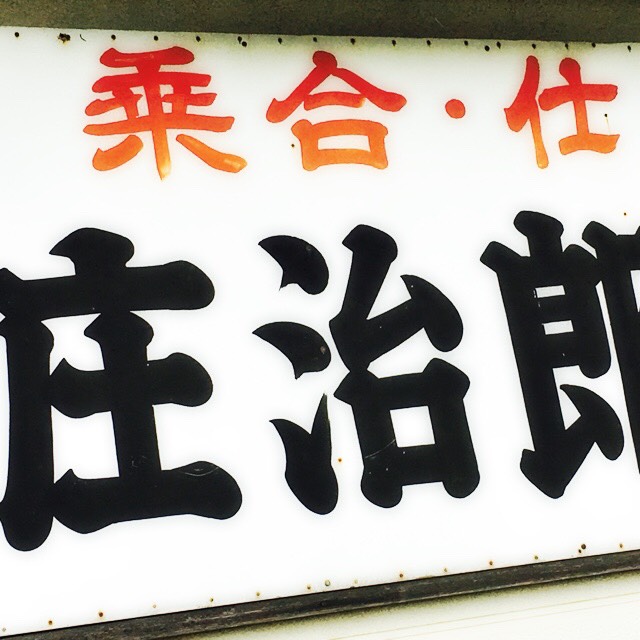 乗合・仕
庄治郎